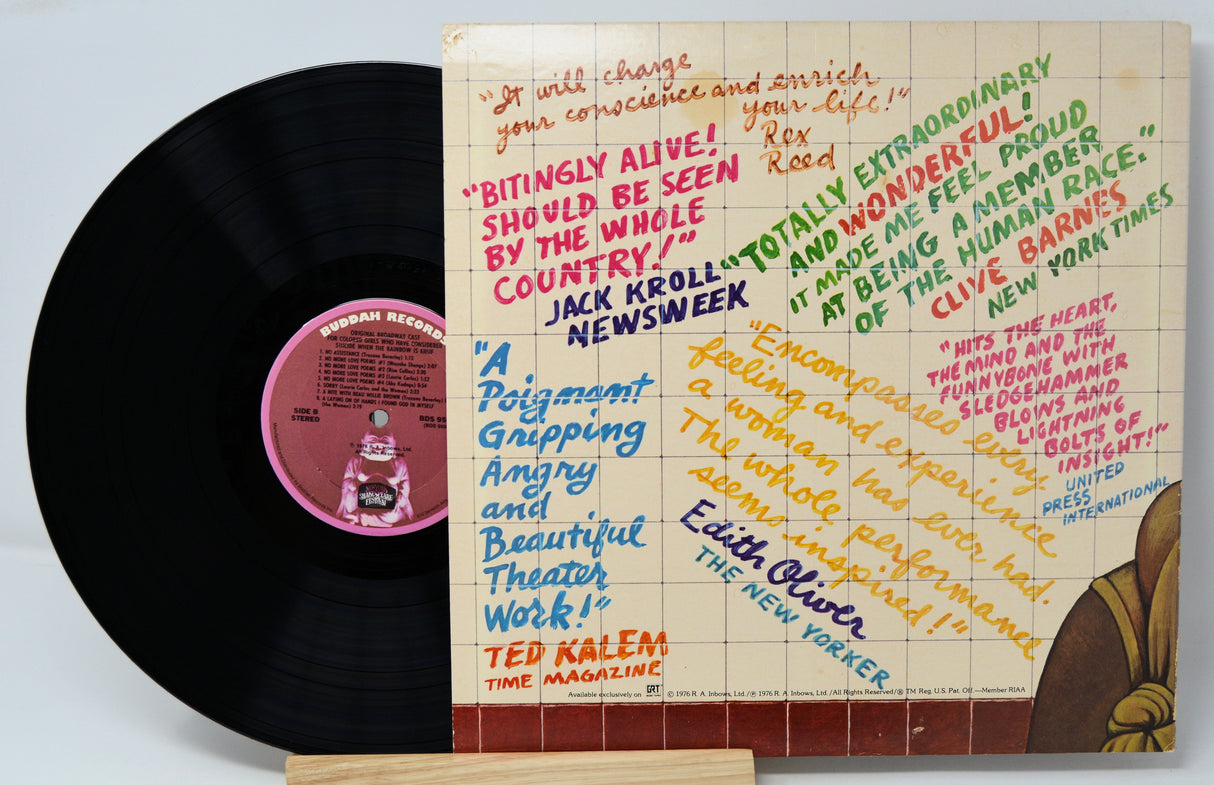 BUDDAH RECORDS
ORIGINAL BROADWAY CAST
FOR COLORED GIRLS WHO HAVE CONSIDERED
SUICIDE WHEN THE RAINBOW IS ENUF
1. NO ASSISTANCE (Trazana Beverley) 1:15
2. NO MORE LOVE POEMS #1 (Ntozake Shange) 2:07
3. NO MORE LOVE POEMS #2 (Rise Collins) 2:20
4. NO MORE LOVE POEMS #3 (Laurie Carlos) 1:57
5. NO MORE LOVE POEMS #4 (Aku Kadogo) 0:54
6. SORRY (Laurie Carlos and the Women) 3:23
7. A NITE WITH BEAU WILLIE BROWN (Trazana Beverley)
8. A LAYING ON OF HANDS I FOUND GOD IN MYSELF
(the Women) 3:19
SIDE B
STEREO
BDS 95
℗ 1976 R. A. Inbows, Ltd.
All Rights Reserved.
"It will charge
your conscience and enrich
your life!"
Rex
Reed
"BITINGLY ALIVE!
SHOULD BE SEEN
BY THE WHOLE
COUNTRY!"
JACK KROLL
NEWSWEEK
"TOTALLY EXTRAORDINARY
AND WONDERFUL!
IT MADE ME FEEL PROUD
AT BEING A MEMBER
OF THE HUMAN RACE."
CLIVE BARNES
NEW YORK TIMES
"A
Poignant
Gripping
Angry
and
Beautiful
Theater
Work!"
TED KALEM
TIME MAGAZINE
"Encompasses every
feeling and experience
a woman has ever had.
The whole performance
seems inspired!"
Edith Oliver
THE NEW YORKER
"HITS THE HEART,
THE MIND AND THE
FUNNYBONE WITH
SLEDGEHAMMER
BLOWS AND
LIGHTNING
BOLTS OF
INSIGHT!"
UNITED
PRESS
INTERNATIONAL
Available exclusively on GRT © 1976 R. A. Inbows, Ltd./℗ 1976 R. A. Inbows, Ltd./All Rights Reserved/® TM Reg. U.S. Pat. Off.—Member RIAA